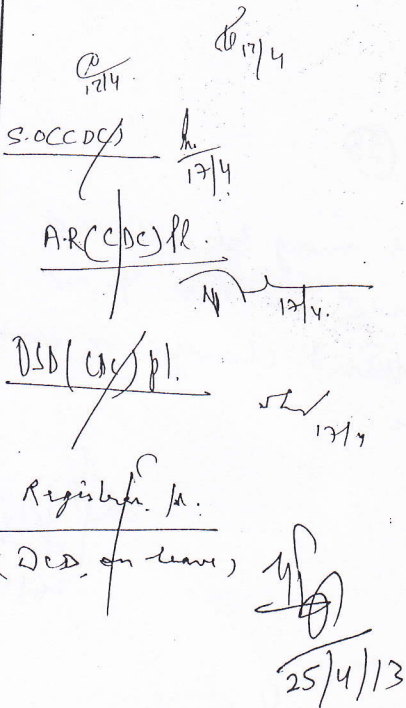 17/4
17/4
S.O(CDC)
17/4
A.R(CDC) pl.
17/4.
DSD(CDC) pl.
17/4
Registrar
(DCD, on leave)
25/4/13